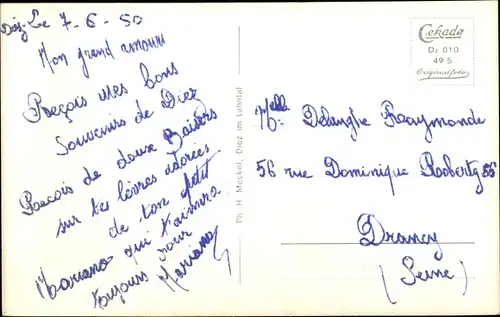 Diez, Le 7-6-50
Mon grand amour
Reçois mes bons
Souvenirs de Diez
Reçois de doux Baisers
sur tes lèvres adorées
de ton petit
Mariano qui t'aimera
toujours pour
Mariano
Ph. H. Meckel, Diez im Lahntal
Cekade
De 010
49 5
Originalfotos
Melle Delanghe Raymonde
56 rue Dominique Roberty 56
Drancy
(Seine)